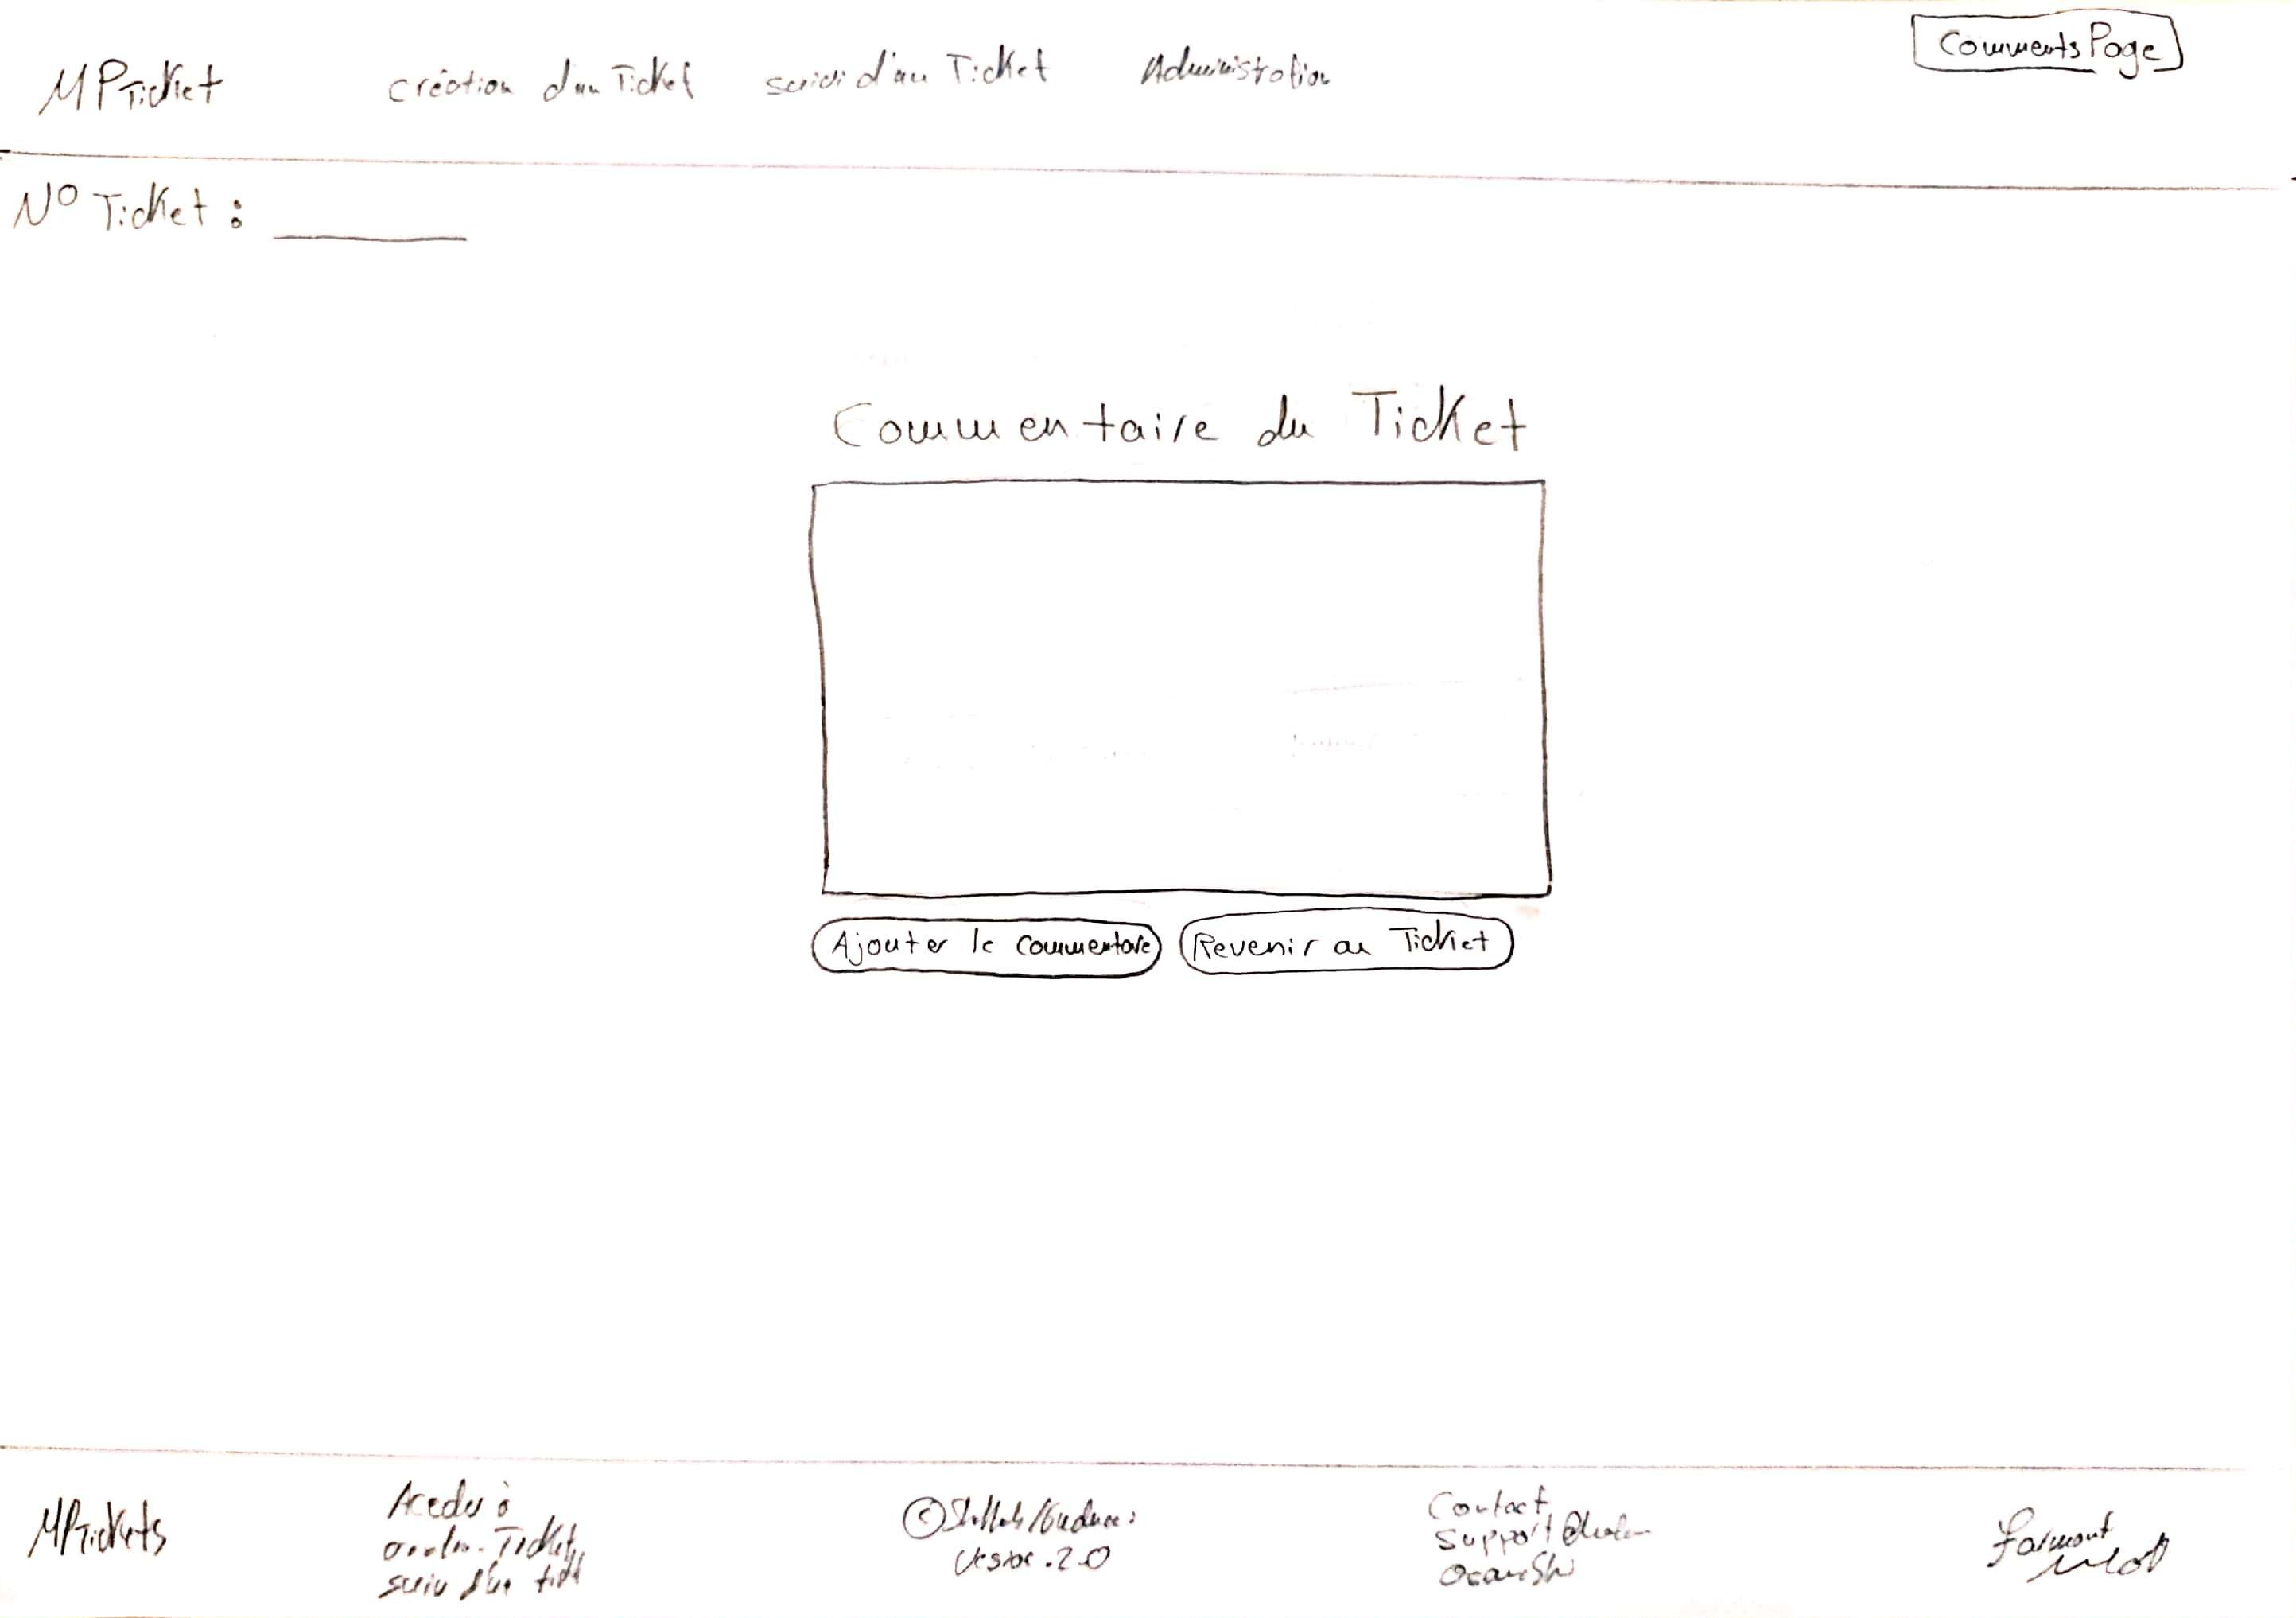 MPTicket création d'un Ticket suivi d'un Ticket Administration
CommentsPage
N° Ticket :
Commentaire du Ticket
Ajouter le commentaire
Revenir au Ticket
MPTickets
Acedu à
Ticket
suiv
©
.2.0
Contact
Support